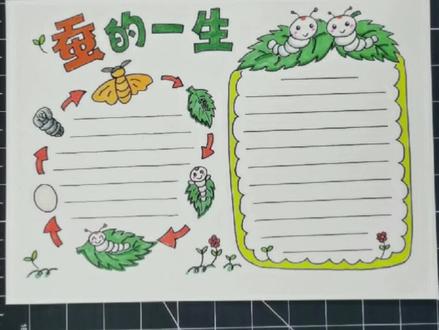 蚕的一生